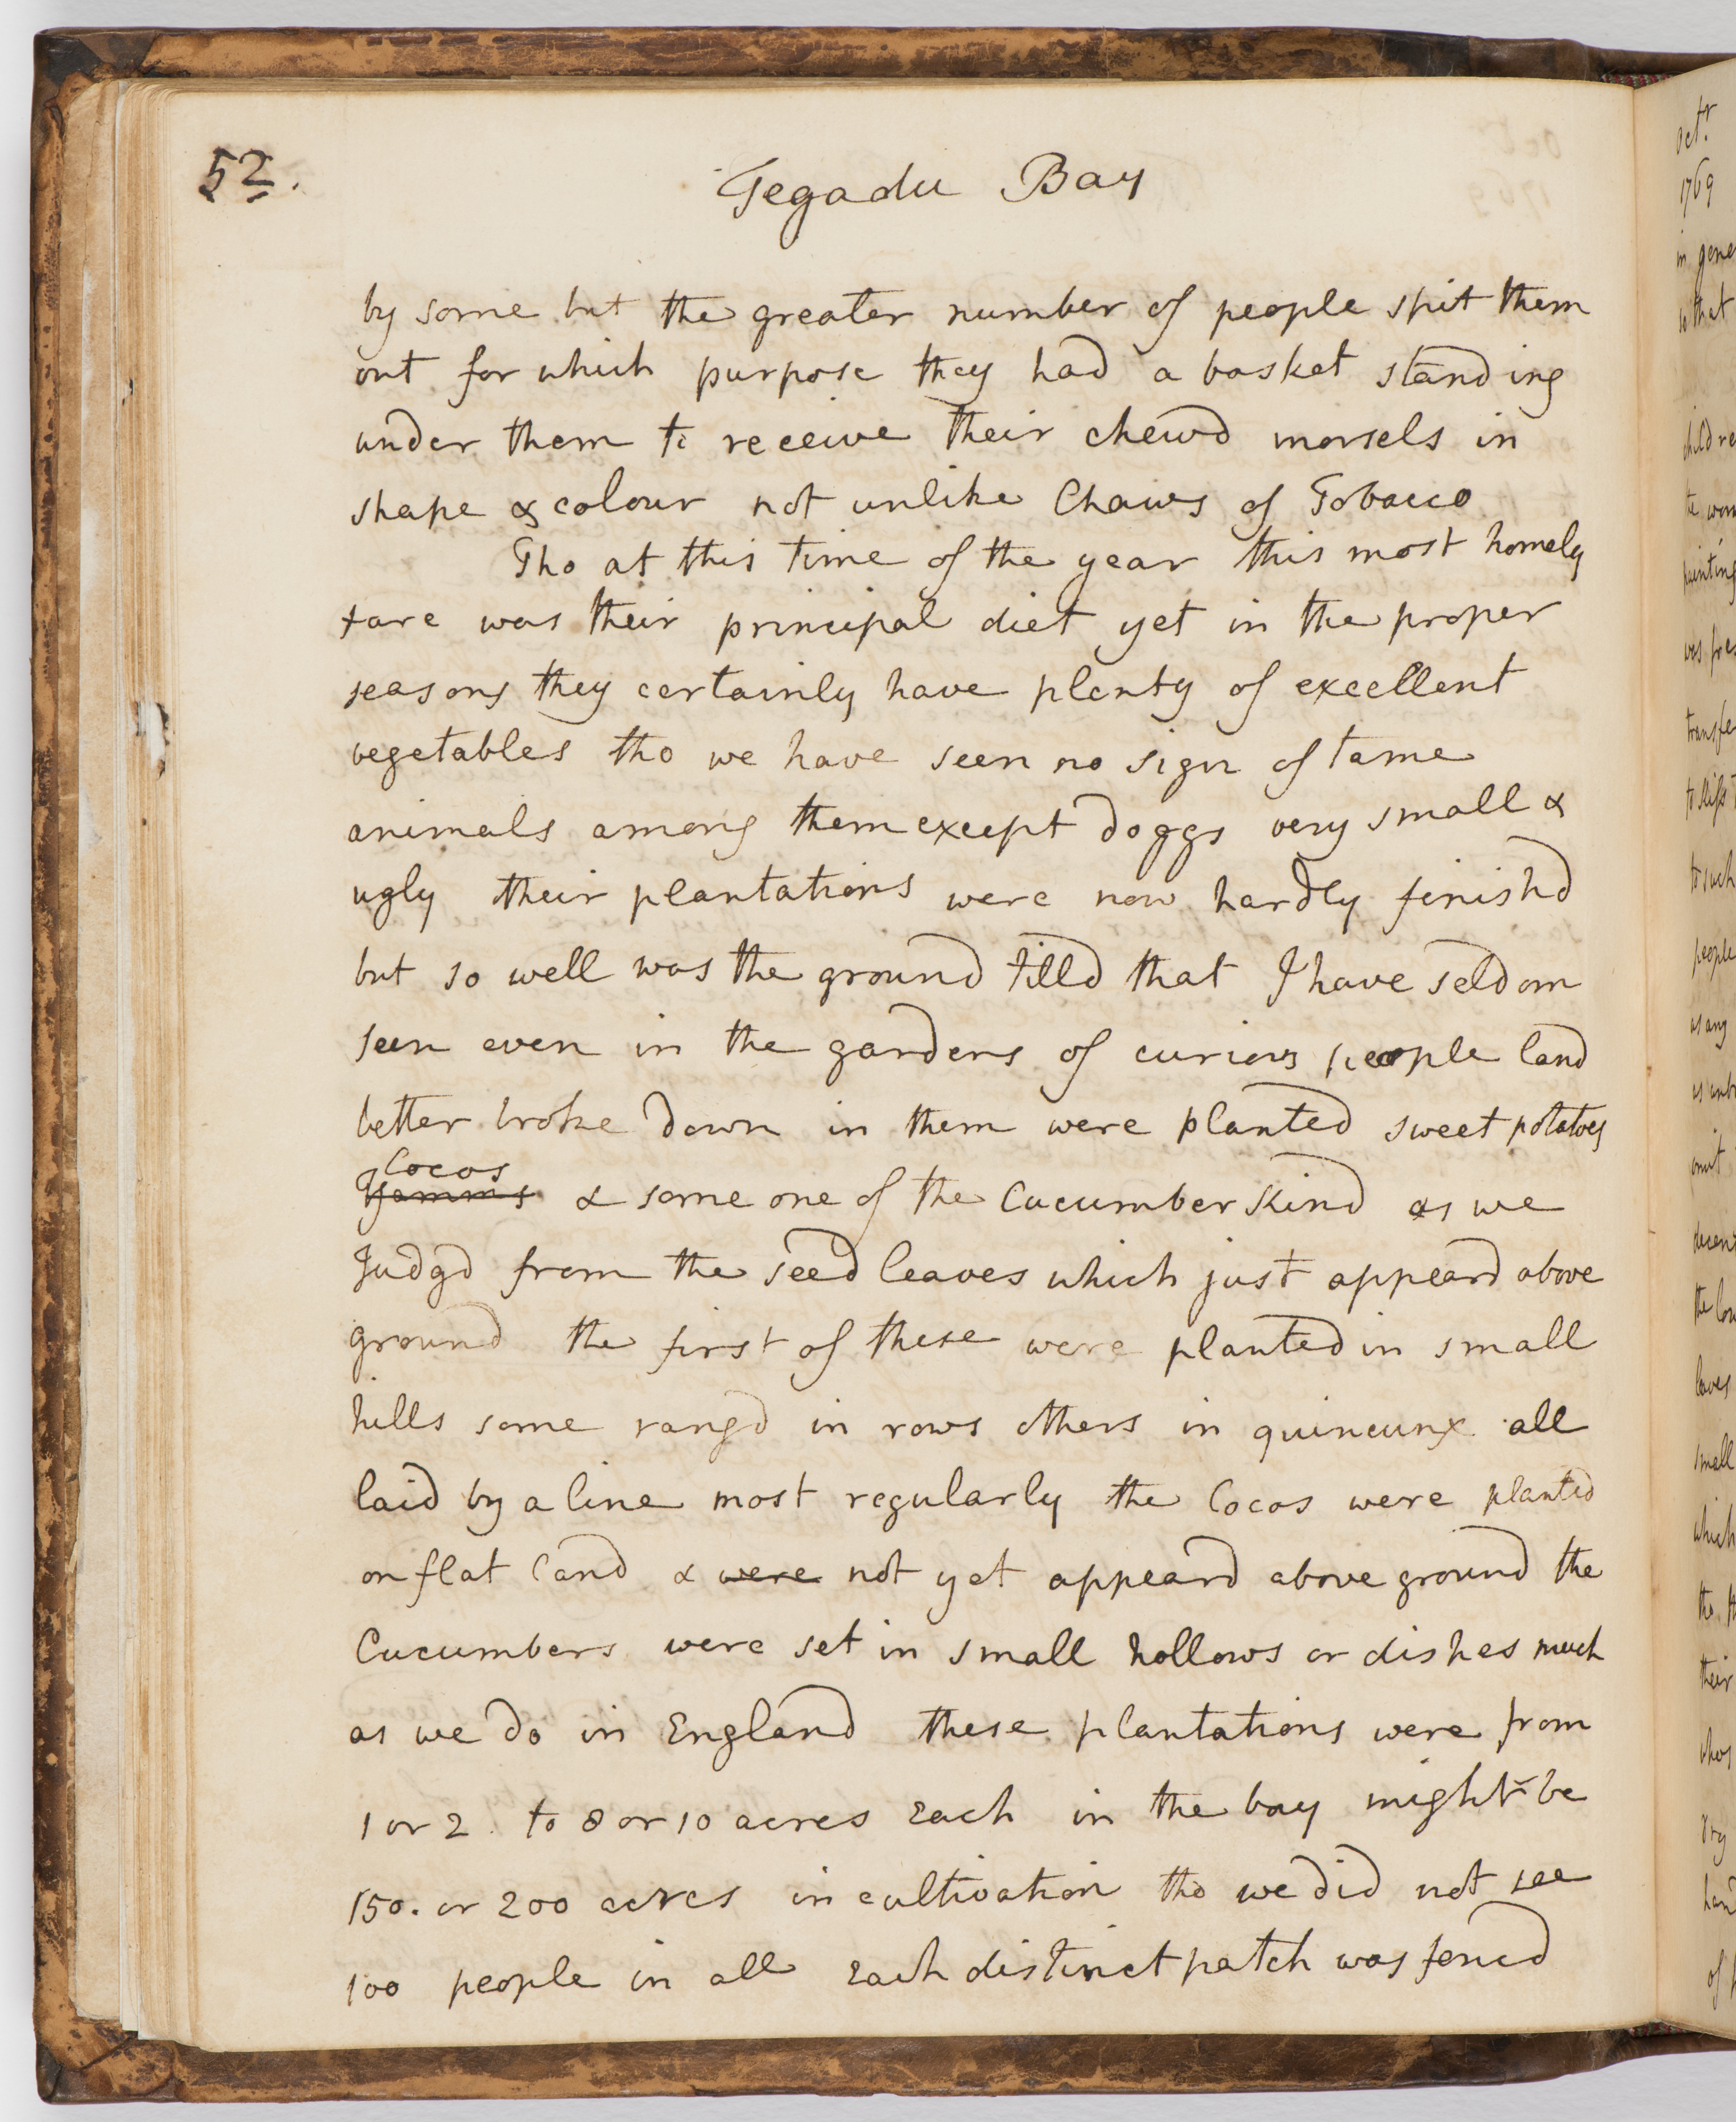 52.
Tegadu Bay
by some but the greater number of people spit them
out for which purpose they had a basket standing
under them to receive their chewd morsels in
shape & colour not unlike Chaws of Tobacco
Tho at this time of the year this most homely
fare was their principal diet yet in the proper
seasons they certainly have plenty of excellent
vegetables tho we have seen no sign of tame
animals among them except doggs very small &
ugly their plantations were now hardly finishd
but so well was the ground tilld that I have seldom
seen even in the gardens of curious people land
better broke down in them were planted sweet potatoes
Cocos
Yamms & some one of the Cucumber kind as we
Judgd from the seed leaves which just appeard above
ground the first of these were planted in small
hills some rangd in rows others in quincunx all
laid by a line most regularly the Cocos were planted
on flat land & were not yet appeard above ground the
Cucumbers were set in small hollows or dishes much
as we do in England these plantations were from
1 or 2 to 8 or 10 acres Each in the bay might be
150. or 200 acres in cultivation tho we did not see
100 people in all Each distinct patch was fencd
Octr.
1769
in gene
that
childre
the wom
painting
was fre
transfe
to such
people
as any
omit
decen
the low
leaves
small
which
their
of